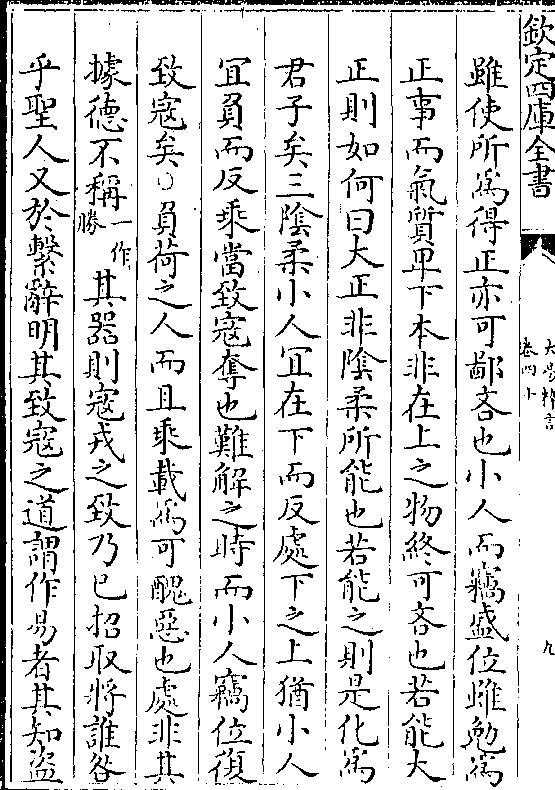 欽定四庫全書
卷四十
九
雖使所為得正亦可鄙吝也小人而竊盛位雖勉為
正事而氣質卑下本非在上之物終可吝也若能大
正則如何曰大正非陰柔所能也若能之則是化為
君子矣三陰柔小人宜在下而反處下之上猶小人
宜負而反乘當致寇奪也難解之時而小人竊位復
致寇矣○負荷之人而且乘載為可醜惡也處非其
據德不稱一作勝其器則寇戎之致乃已招取將誰咎
乎聖人又於繫辭明其致寇之道謂作易者其知盜